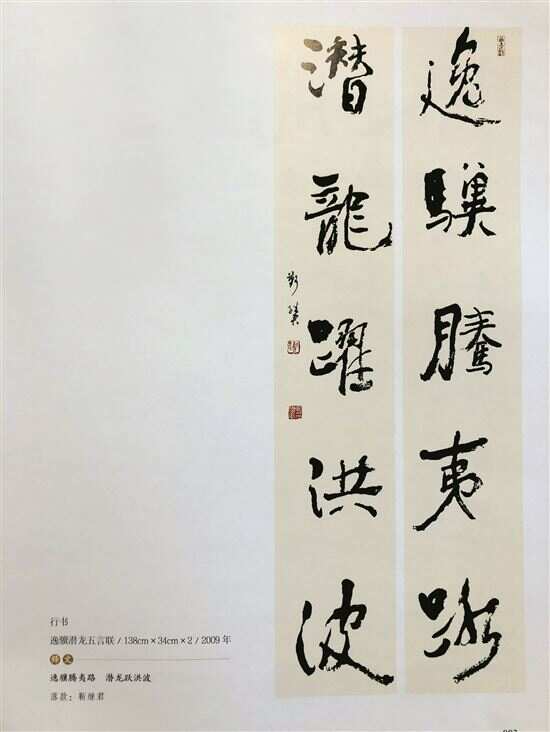 逸驥騰夷路
潛龍躍洪波
行书
逸骥潜龙五言联 / 138cm×34cm×2 / 2009 年
释文
逸骥腾夷路 潜龙跃洪波
落款：靳继君